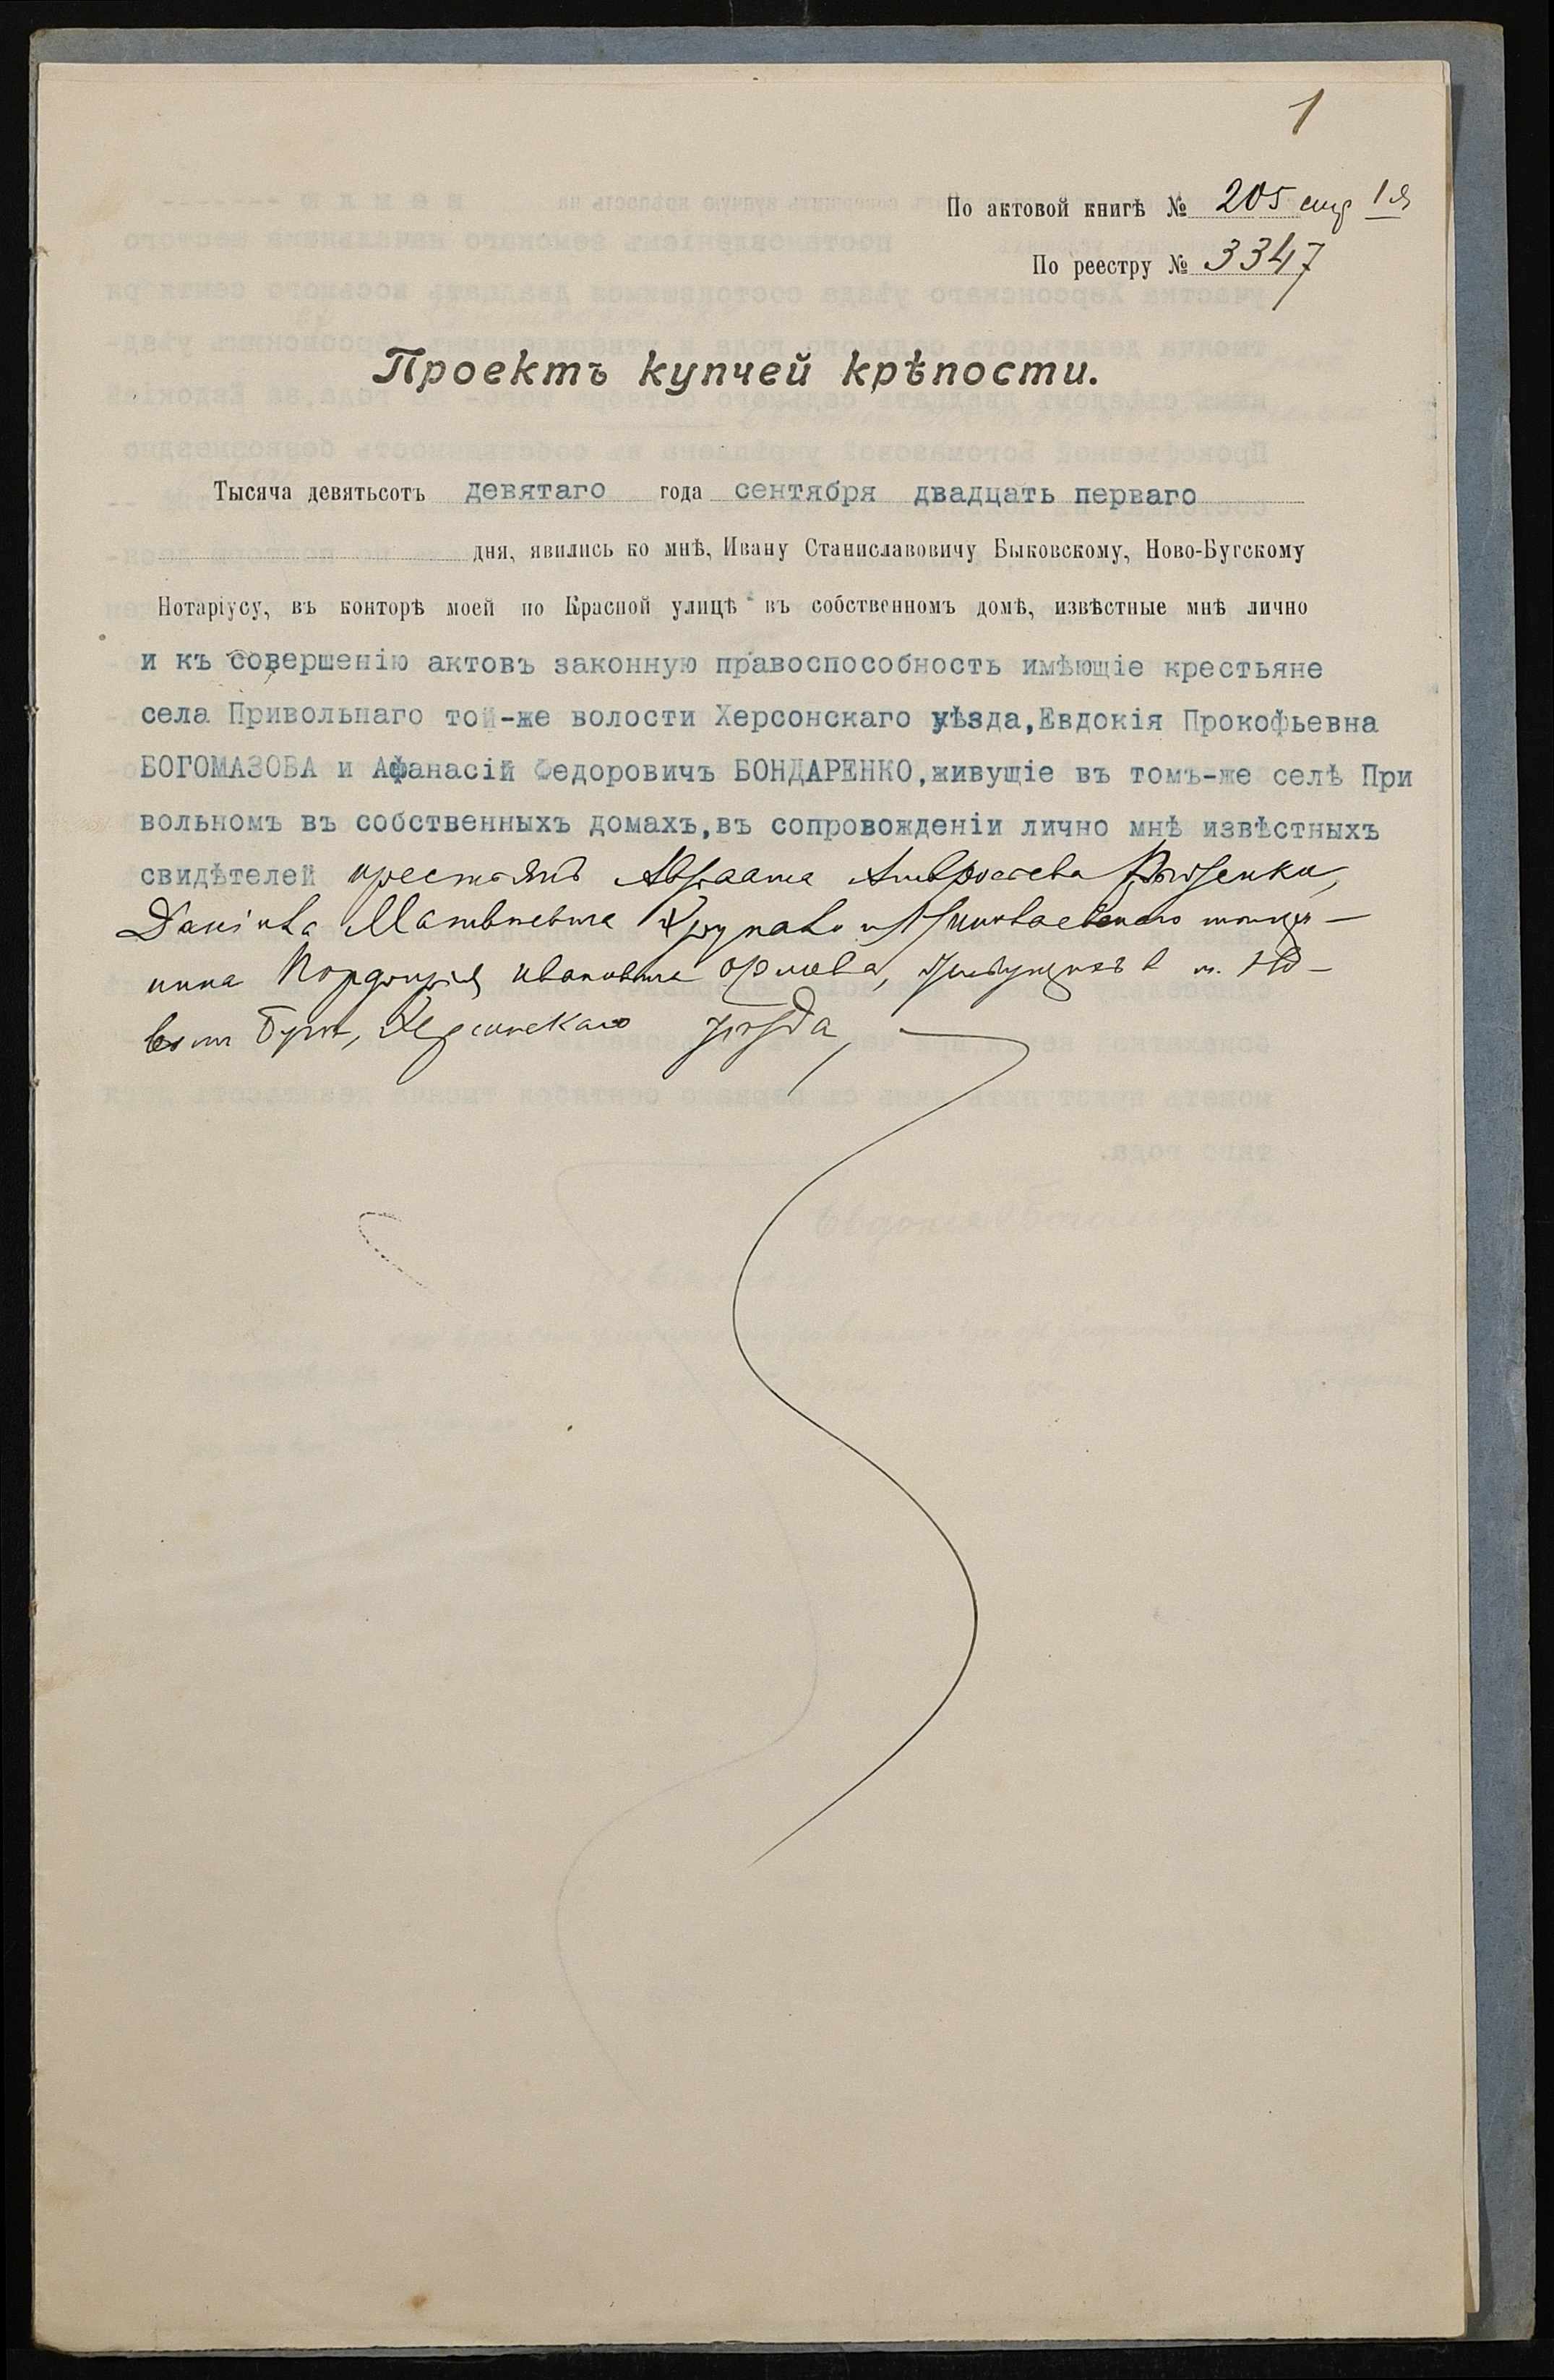 1
По актовой книгѣ № 205 стр 1я
По реестру № 3347
Проектъ купчей крѣпости.
Тысяча девятьсотъ девятаго года сентября двадцать перваго
дня, явились ко мнѣ, Ивану Станиславовичу Быковскому, Ново-Бугскому
Нотаріусу, въ конторѣ моей по Красной улицѣ въ собственномъ домѣ, извѣстные мнѣ лично
и къ совершенію актовъ законную правоспособность имѣющіе крестьяне
села Привольнаго той-же волости Херсонскаго уѣзда,Евдокія Прокофьевна
БОГОМАЗОВА и Афанасій Федоровичъ БОНДАРЕНКО,живущіе въ томъ-же селѣ При
вольномъ въ собственныхъ домахъ,въ сопровожденіи лично мнѣ извѣстныхъ
свидѣтелей крестьянъ Авраама Амвросіева
Даніила Матвѣевича и Николаевскаго мѣща-
нина Порфирія Ивановича Орлова, живущихъ в м. Но-
вомъ Бугѣ, Херсонскаго уѣзда,